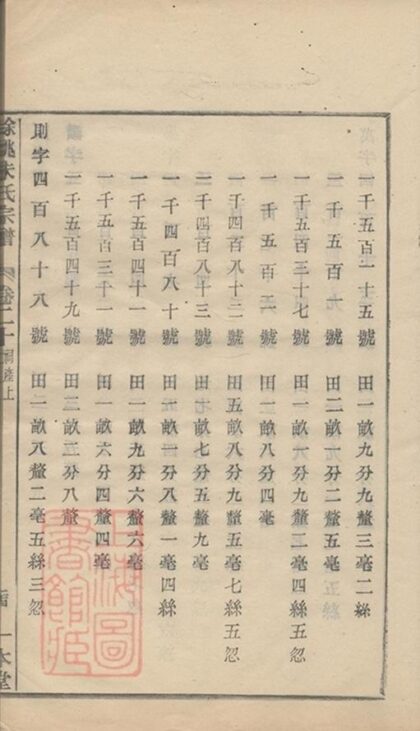 一千五百一十五號 田一畝九分九釐三毫二絲
一千五百一號 田二畝一分二釐五毫
一千五百三十七號 田一畝八分九釐二毫四絲五忽
一千五百二號 田一畝八分四毫
一千四百八十二號 田五畝八分九釐五毫七絲五忽
一千四百八十三號 田七畝七分五釐九毫
一千四百八十號 田一畝一分八釐一毫四絲
一千五百四十一號 田一畝九分六釐六毫
一千五百三十一號 田一畝六分四釐四毫
一千五百四十九號 田二畝三分八釐
則字四百八十八號 田二畝八釐二毫五絲三忽
餘姚朱氏宗譜 卷二十 祠產上 一本堂
上海圖書館藏